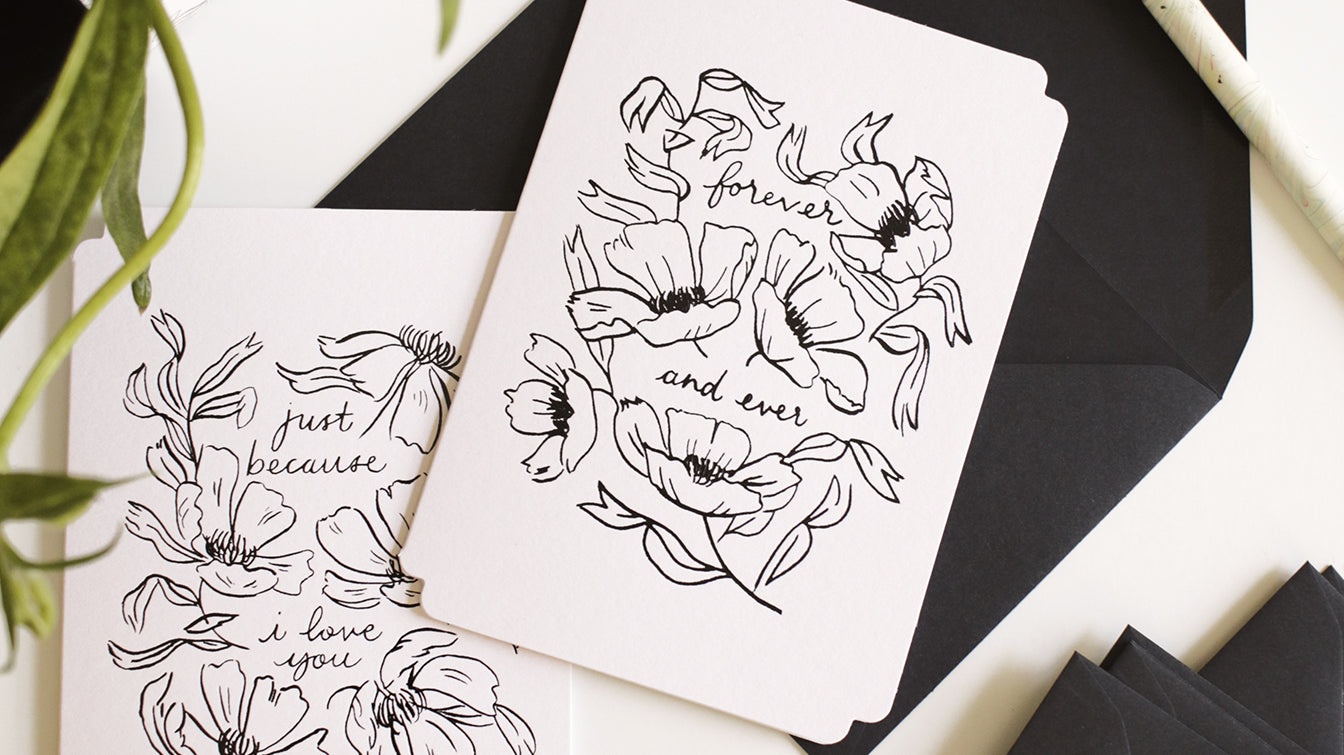 forever
and ever
just
because
i love
you